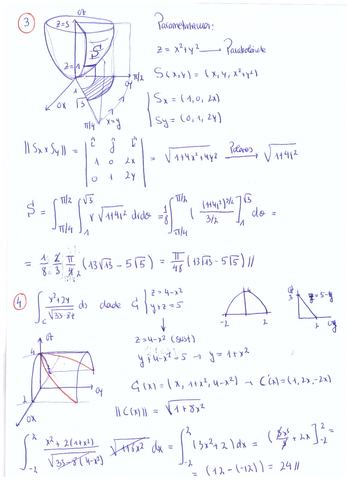 3
OZ
Z=5
Z=1
1
√3
OX
π/4
x=y
OY
π/2
Z = x²+y² → Paraboloide
S(x,y) = (x, y, x²+y²)
{ Sx = (1, 0, 2x)
Sy = (0, 1, 2y)
||Sx×Sy|| = | î ĵ k̂ | 1 0 2x | 0 1 2y | = √1+4x²+4y² Polares → √1+4r²
S = ∫π/4^π/2 ∫1^√3 r √1+4r² drdθ = 1/8 ∫π/4^π/2 [ (1+4r²)^3/2 / 3/2 ]1^√3 dθ =
= 1/8 · 2/3 · π/4 (13√13 - 5√5) = π/48 (13√13 - 5√5) //
4
∫C x²+2y / √33-8z ds dade C | z = 4-x²
y+z = 5
z = 4-x² (sust)
y+4-x² = 5 → y = 1+x²
-2
2
4
OZ
OY
OX
C(x) = (x, 1+x², 4-x²) → C'(x) = (1, 2x, -2x)
||C'(x)|| = √1+8x²
∫-2^2 x²+2(1+x²) / √33-8(4-x²) √1+8x² dx = ∫-2^2 (3x²+2) dx = ( 3x³/3 + 2x ]-2^2 =
= (12-(-12)) = 24 //